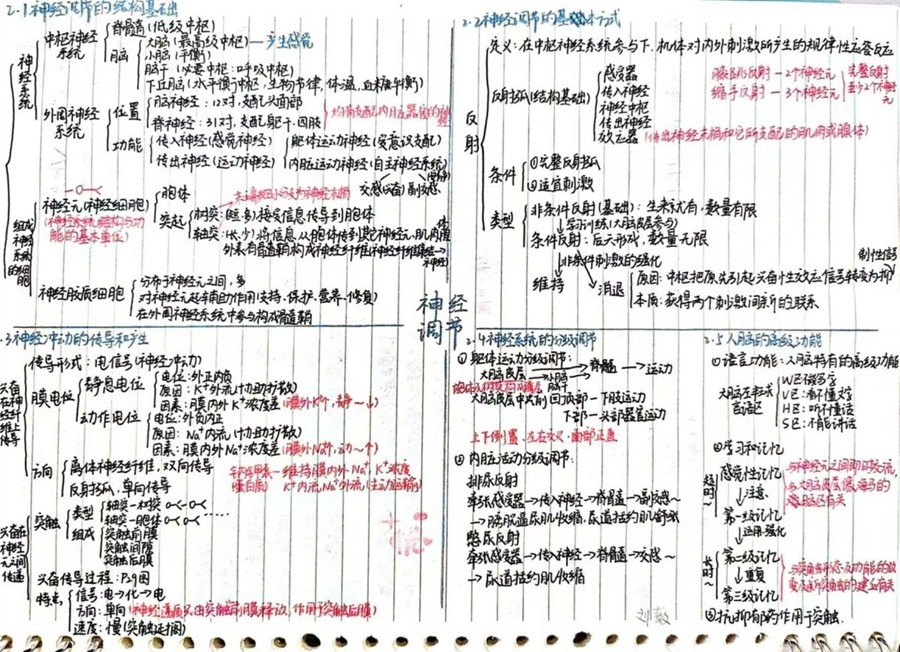 2.1神经调节的结构基础
神经系统
中枢神经系统
脊髓(低级中枢)
脑
大脑(最高级中枢)—产生感觉
小脑(平衡)
脑干(必要中枢:呼吸中枢)
下丘脑(水平衡中枢,生物节律,体温,血糖平衡)
外周神经系统
位置
脑神经:12对,支配头面部
脊神经:31对,支配躯干、四肢
功能
传入神经(感觉神经)
传出神经(运动神经)
躯体运动神经(受意识支配)
内脏运动神经(自主神经系统)
交感 副交感
组成神经系统的细胞
神经元(神经细胞)
(神经系统结构与功能的基本单位)
胞体
突起
树突:(短,多)接受信息传导到胞体
轴突:(长,少)将信息从胞体传到其它神经元、肌肉、腺体
神经胶质细胞
分布于神经元之间,多
对神经元起辅助作用(支持、保护、营养、修复)
在外周神经系统中参与构成髓鞘
2.2神经调节的基本方式
反射
定义:在中枢神经系统参与下,机体对内外刺激所产生的规律性应答反应
反射弧(结构基础)
感受器
传入神经
神经中枢
传出神经
效应器(传出神经末梢和它所支配的肌肉或腺体)
膝跳反射—2个神经元
缩手反射—3个神经元
完整反射
至少2个神经元
条件
①完整反射弧
②适宜刺激
类型
非条件反射(基础):生来就有,数量有限
学习训练(大脑皮层参与)
条件反射:后天形成,数量无限
非条件刺激的强化
维持
消退
原因:中枢把原先引起兴奋性效应信号转变为抑制性信号
本质:获得两个刺激间新的联系
神经调节
.3神经冲动的传导和产生
兴奋在神经纤维上传导
传导形式:电信号(神经冲动)
膜电位
静息电位
电位:外正内负
原因:K⁺外流(协助扩散)
因素:膜内外K⁺浓度差(膜外K⁺↑,静~↓)
动作电位
电位:外负内正
原因:Na⁺内流(协助扩散)
因素:膜内外Na⁺浓度差(膜外Na⁺↑,动~↑)
方向
离体神经纤维,双向传导
反射弧,单向传导
钠钾泵—维持膜内外Na⁺、K⁺浓度
(蛋白质) K⁺内流,Na⁺外流(主动运输)
兴奋在神经元之间传递
突触
类型
轴突—树突
轴突—胞体
组成
突触前膜
突触间隙
突触后膜
兴奋传导过程:P29图
特点
信号:电→化→电
方向:单向(神经递质只由突触前膜释放,作用于突触后膜)
速度:慢(突触延搁)
2.4神经系统的分级调节
①躯体运动分级调节:
大脑皮层
小脑
脑干
→脊髓→运动
大脑皮层中央前回顶部—下肢运动
下部—头部器官运动
上下倒置、左右交叉、面部正直
②内脏活动分级调节:
排尿反射
牵张感受器→传入神经→脊髓→副交感~
→膀胱逼尿肌收缩,尿道括约肌舒张
憋尿反射
牵张感受器→传入神经→脊髓→交感~
→尿道括约肌收缩
2.5人脑的高级功能
①语言功能:人脑特有的高级功能
大脑左半球言语区
W区:
V区:看不懂字
H区:听不懂话
S区:不能讲话
②学习和记忆
短时~
感觉性记忆
↓注意
第一级记忆
运用·强化
与神经元之间即时交流,
与大脑皮层
有关
长时~
第二级记忆
↓重复
第三级记忆
与突触形态及功能的改变及新突触的建立有关
③抗抑郁药作用于突触.